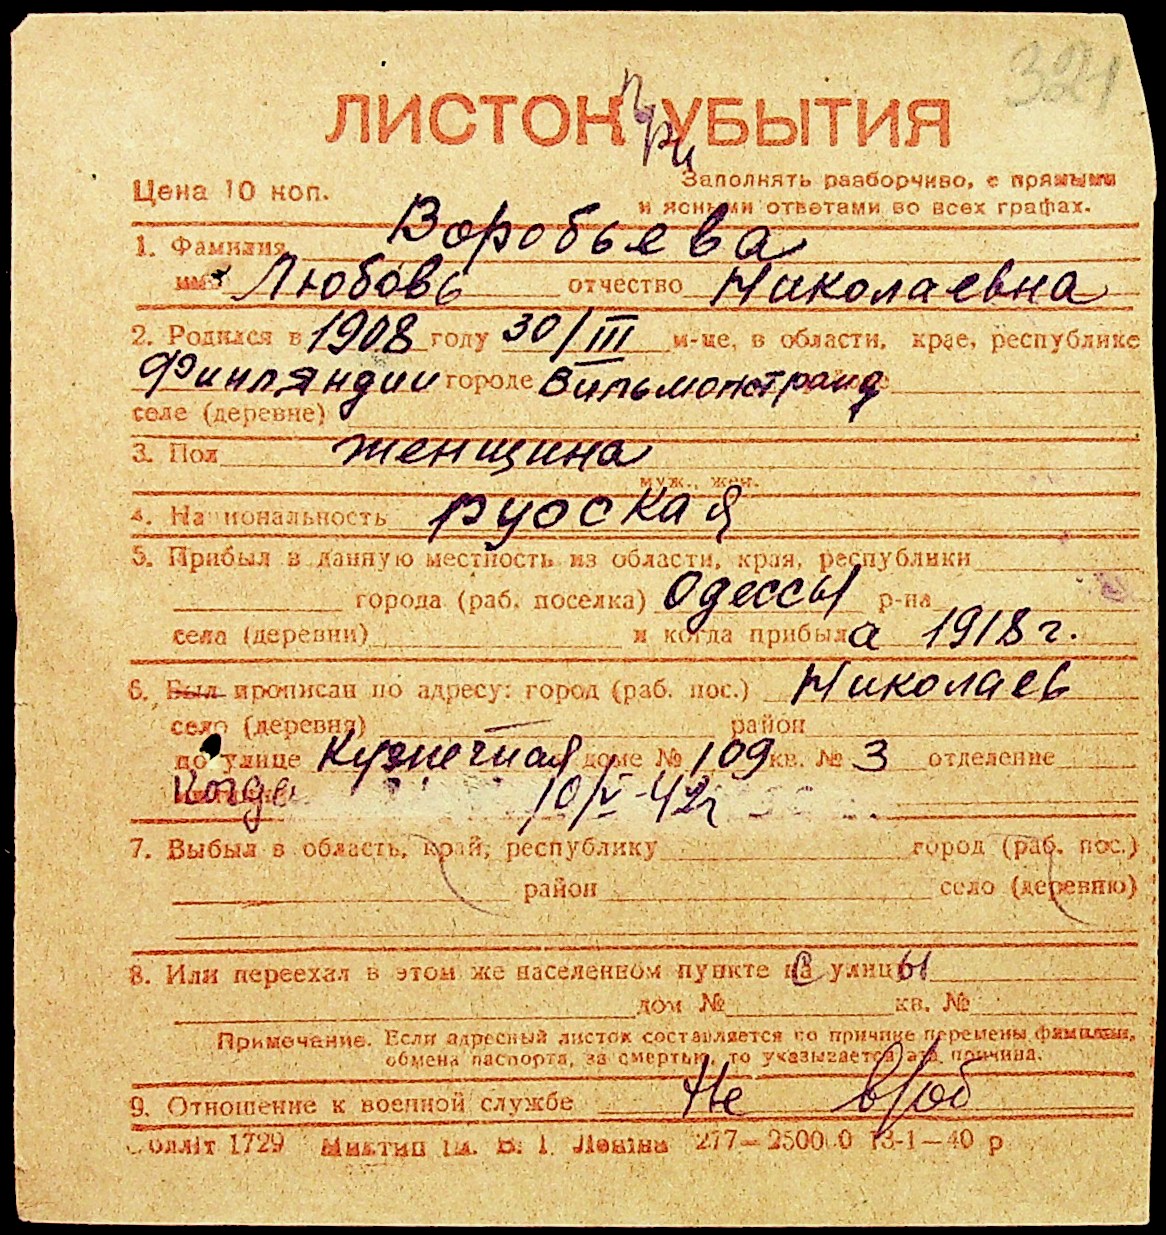 321
ЛИСТОК УБЫТИЯ
При
Цена 10 коп.
Заполнять разборчиво, с прямыми
и ясными ответами во всех графах.
1. Фамилия Воробьева
имя Любовь отчество Николаевна
2. Родился в 1908 году 30/III м-це, в области, крае, республике
Финляндии городе Вильмонстранд
селе (деревне)
3. Пол женщина
муж., жен.
4. Национальность русская
5. Прибыл в данную местность из области, края, республики
города (раб. поселка) Одессы р-на
села (деревни) и когда прибыла 1918 г.
6. Был прописан по адресу: город (раб. пос.) Николаев
село (деревня) район
по улице Кузнечная доме № 109 кв. № 3 отделение
Когда 10/V-42г
7. Выбыл в область, край, республику город (раб. пос.)
район село (деревню)
8. Или переехал в этом же населенном пункте с улицы
дом № кв. №
Примечание. Если адресный листок составляется по причине перемены фамилии,
обмена паспорта, за смертью, то указывается эта причина.
9. Отношение к военной службе Не в/об
Обліт 1729 Миктип ім. В. І. Леніна 277—250000 13-1—40 р